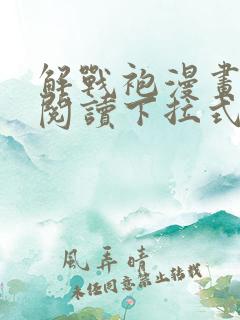 解戰袍漫畫
閱讀下拉式
風弄晴
未經同意禁止轉載